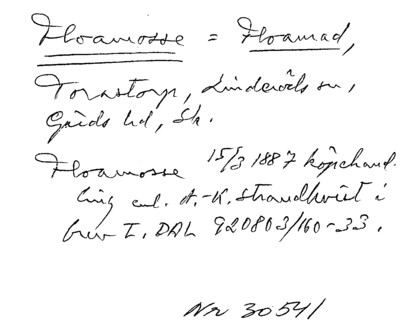 Floamosse = Floarnad,
Torastorp, Linderöds sn,
Gärds hd, Sk.
Floamosse 15/3 1887 köpehand-
ling enl. A.-K. Strandkvist i
brev t. DAL 920803/160-33.
Nr 30541